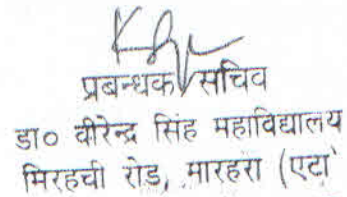 प्रबन्धक/सचिव
डा० वीरेन्द्र सिंह महाविद्यालय
मिरहची रोड, मारहरा (एटा)